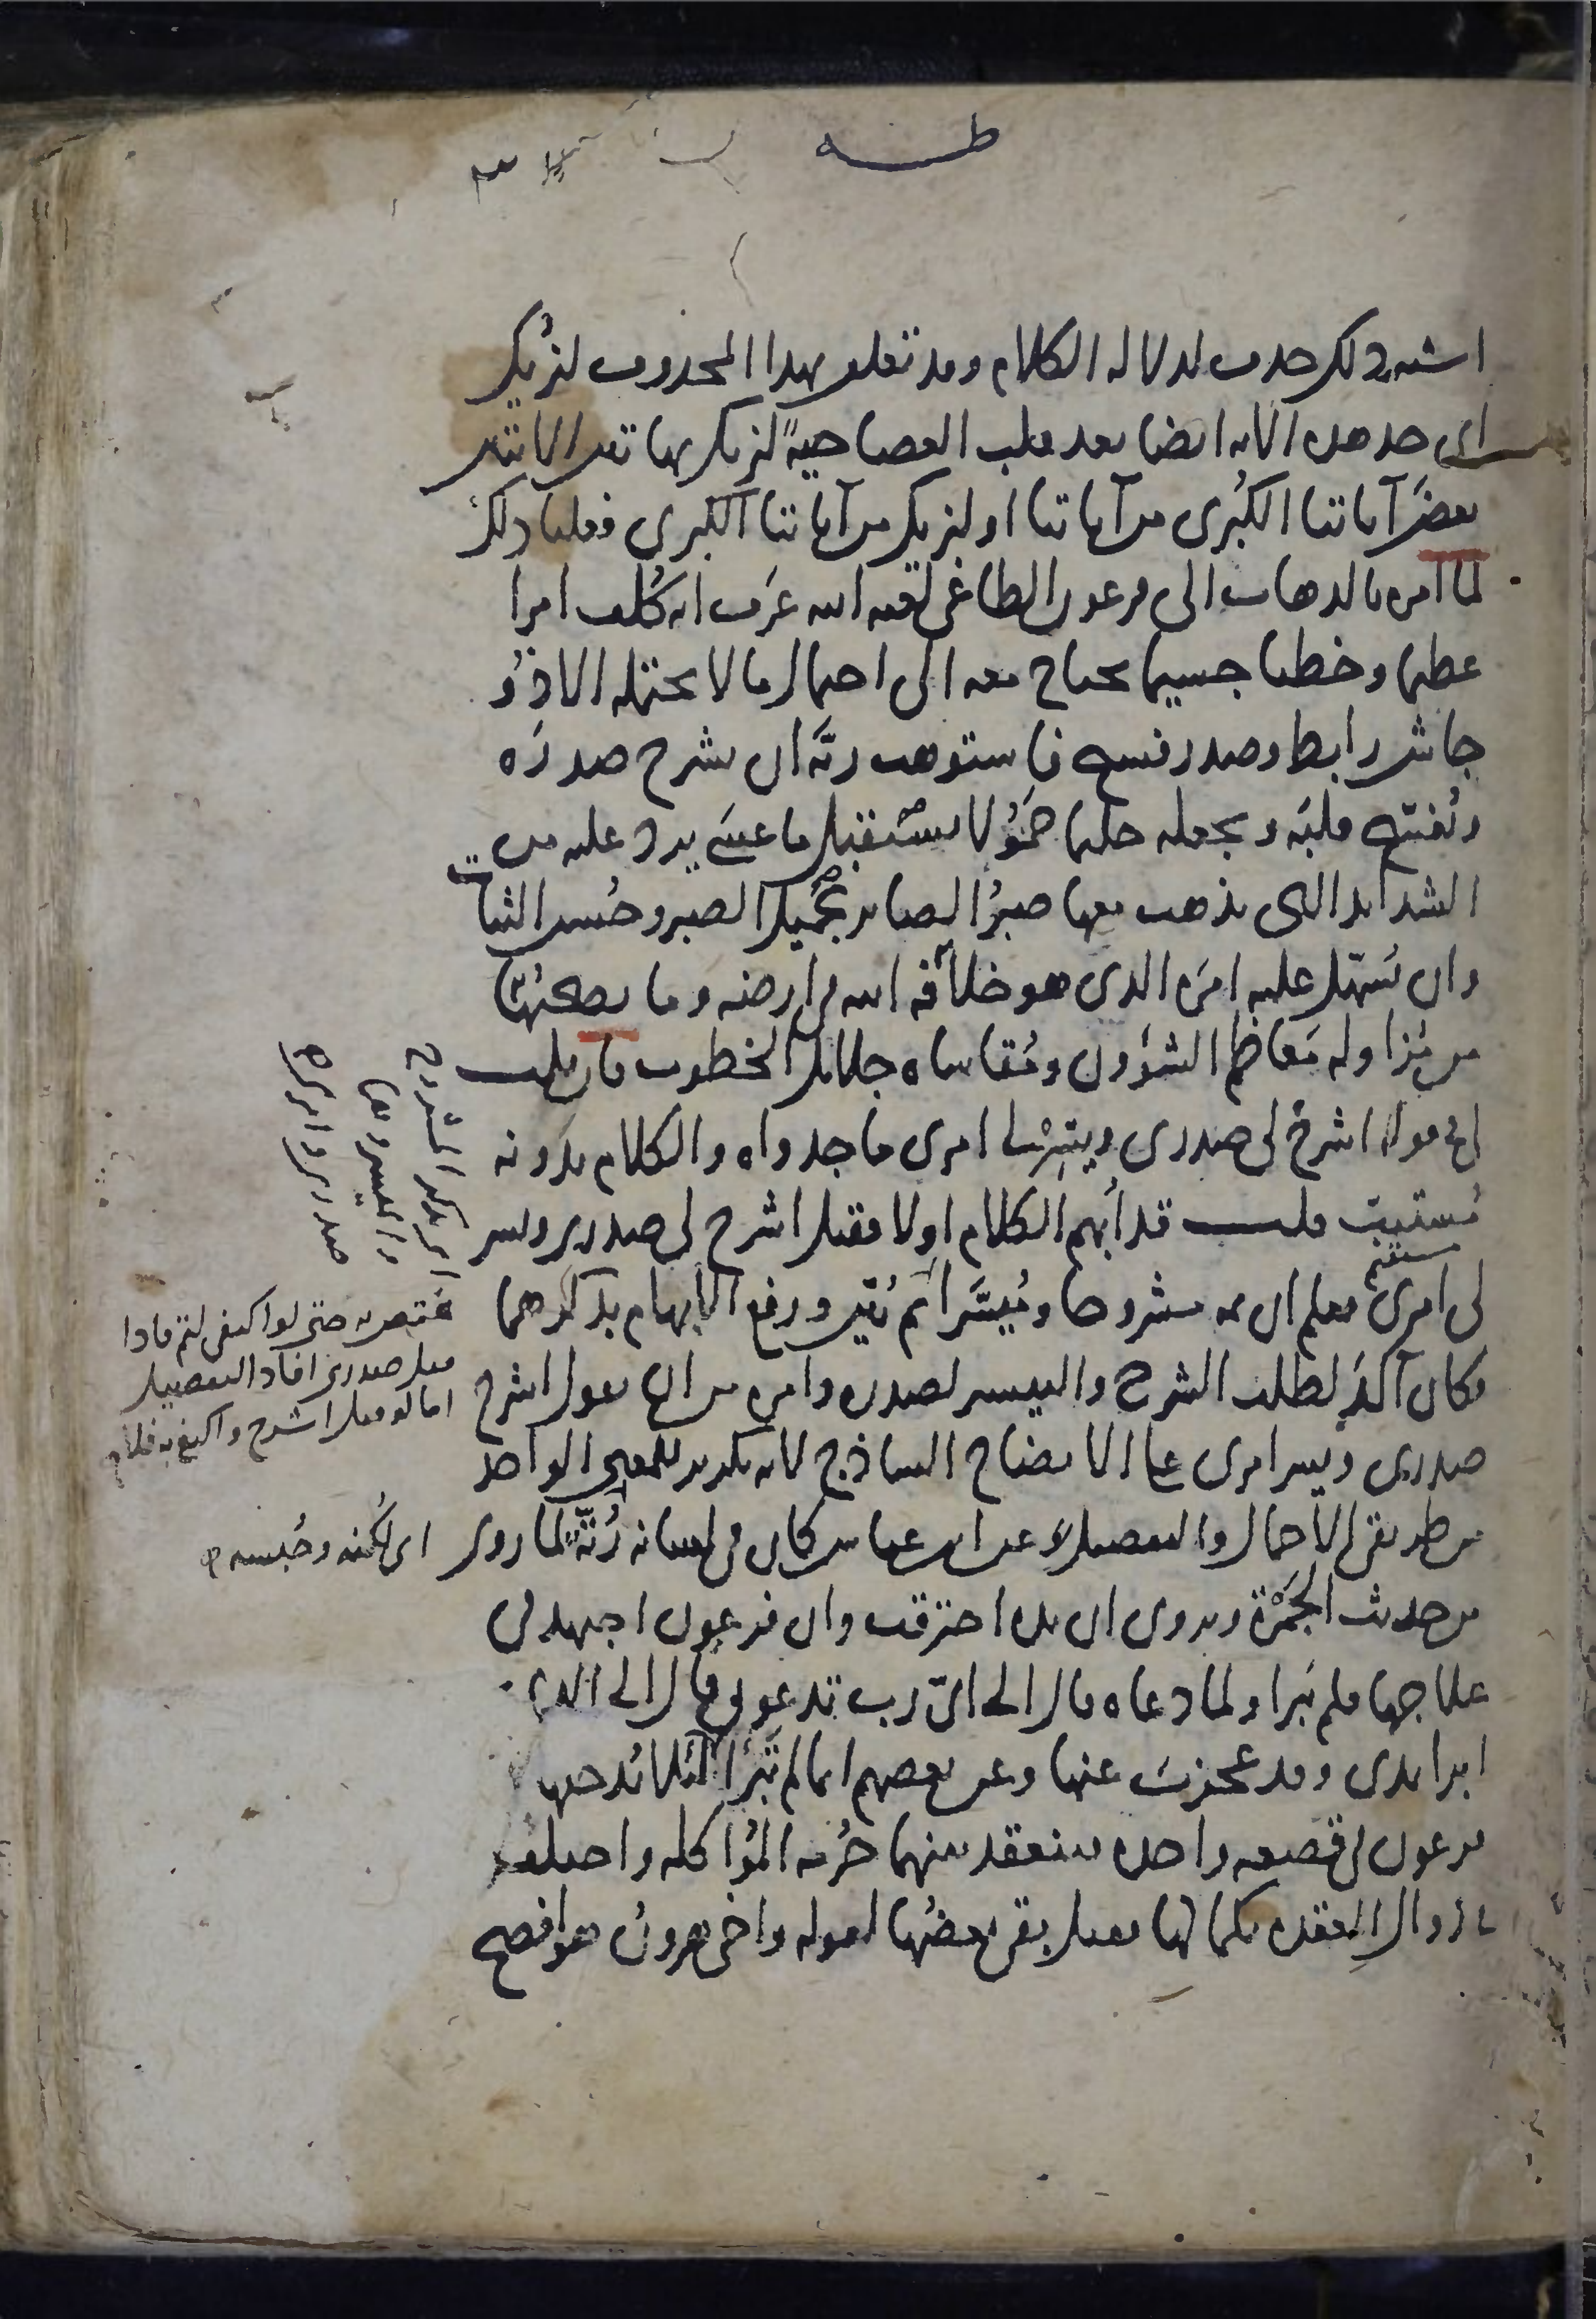 طه
اشبه ذلك حذف لدلالة الكلام وقد تعلق بهذا المحذوف لنريك
اى خذ هذه الاية ايضا بعد قلب العصا حيةً لنريك بهاتين الايتين
بعضَ آياتنا الكُبرى من آياتنا او لنريك من آياتنا الكبرى فعلنا ذلك
لما امره بالذهاب الى فرعون الطاغى لعنه الله عَرف انه كُلّف امرا
عظيما وخطبا جسيما يحتاج معه الى احتمال ما لا يحتمله الا ذو
جاش رابط وصدر فسيح فاستوهب ربّه ان يشرح صدرَه
ويُفسّح قلبَه ويجعله حليما حَمُولا يستقبل ما عسى يرد عليه من
الشدائد التى يذهب معها صبرُ الصابر بجميل الصبر وحُسن الثبات
وان يُسهّل عليه امرَه الذى هو خلافة الله فى ارضه وما يصحبُها
من مُزاولة مَعاظم الشؤون ومُقاساة جلائل الخطوب فان قلت
لى فى قوله اشرحْ لى صدرى ويسِّرْ لى امرى ما جدواه والكلام بدونه
مُستتِبّ قلت قد أُبهم الكلام اولا فقيل اشرح لى صدرى ويسر
مستقيم
لى امرى فعلم ان ثمه مشروحا ومُيسَّرا ثم بُيّن ورفع الابهام بذكرهما
فكان آكدَ لطلب الشرح والتيسير لصدره وامره من ان يقول اشرح
صدرى ويسر امرى على الايضاح الساذج لانه تكرير للمعنى الواحد
من طريقى الاجمال والتفصيل عن ابن عباس كان فى لسانه رُتّة لما روى
من حديث الجَمْرة ويروى ان يده احترقت وان فرعون اجتهد فى
علاجها فلم تبرا ولما دعاه قال الى اىّ رب تدعونى قال الى الذى
ابرا يدى وقد عجزتَ عنها وعن بعضهم انما لم تَبرأ لئلا يُدخلها
فرعون فى قصعة واحدة فتنعقد بينهما حُرمة المُؤاكلة واختلف
فى زوال العقدة بكمالها فقيل بقى بعضُها لقوله واخى هرونُ هو افصح
اى تاكيد الشرح
والتيسير و
صدرى وامرى
قيل صدرى افاد التفصيل
اما لو قيل اشرح واكتفى به فلا م
اى لُكنه وحُبسه م